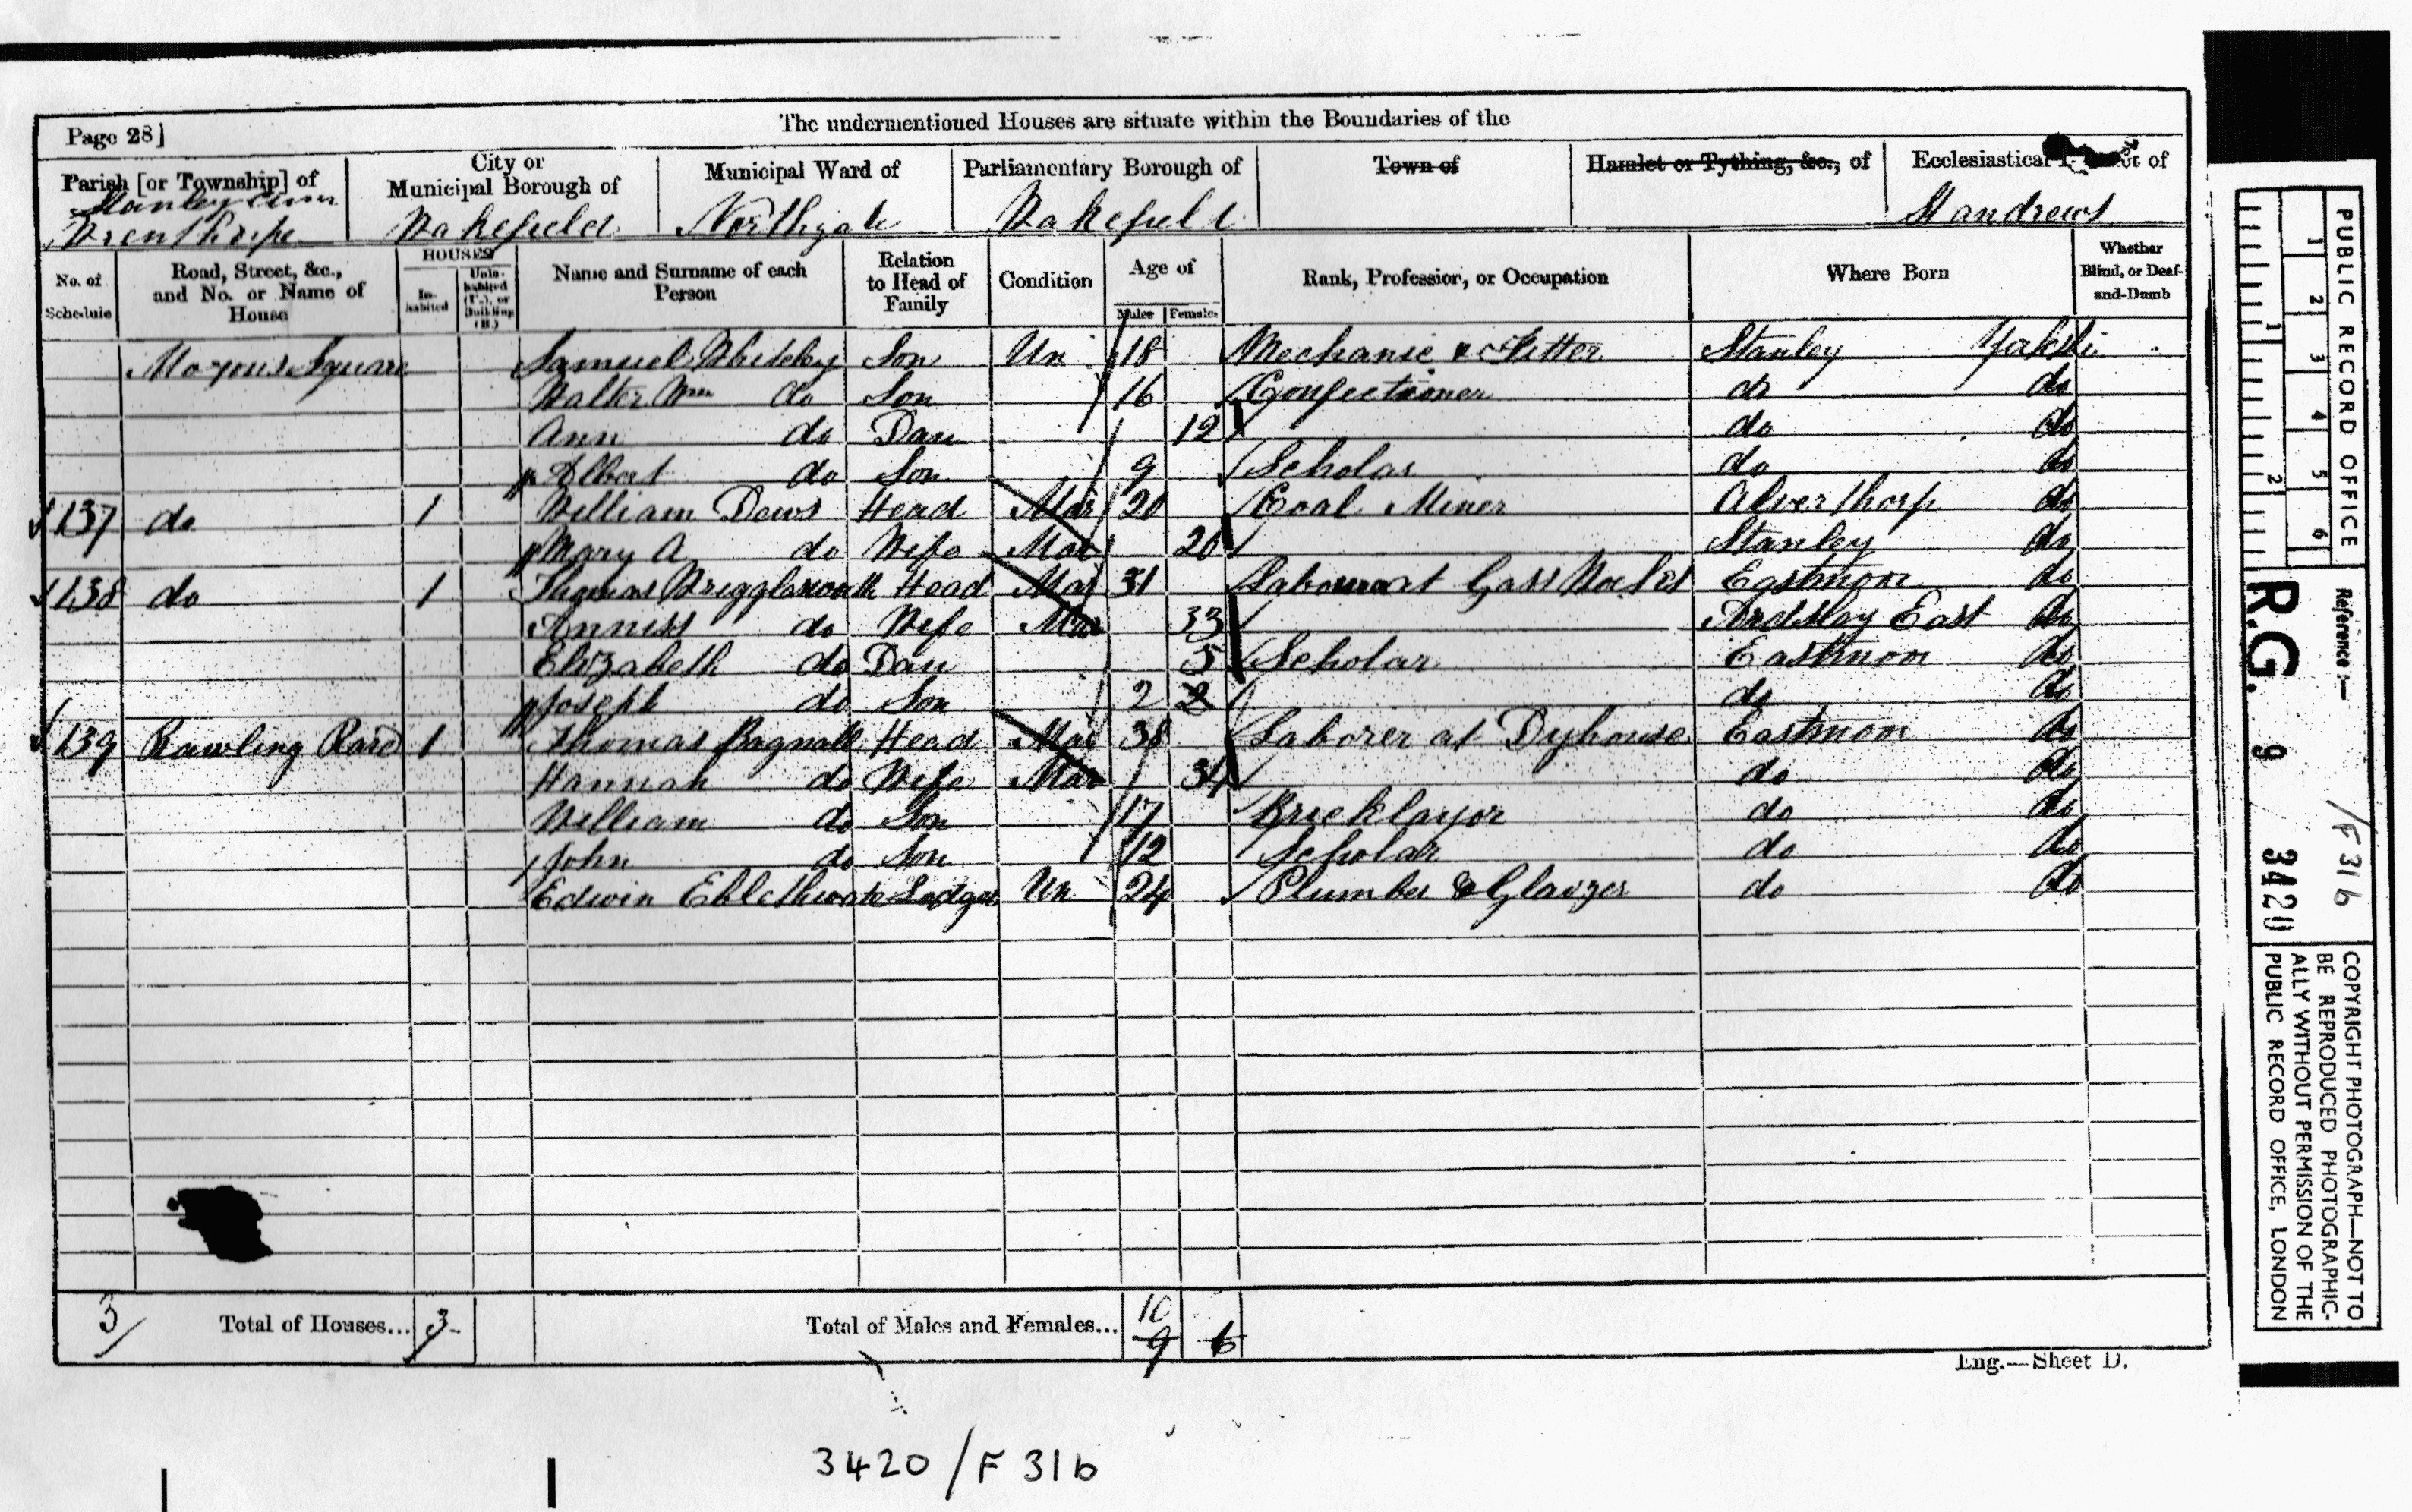 Page 28]
The undermentioned Houses are situate within the Boundaries of the
Parish [or Township] of
Stanley cum
Wrenthorpe
City or
Municipal Borough of
Wakefield
Municipal Ward of
Northgate
Parliamentary Borough of
Wakefield
Town of
Hamlet or Tything, &c., of
Ecclesiastical of
St andrews
No. of
Schedule
Road, Street, &c.,
and No. or Name of
House
HOUSES
In-
habited
Unin-
habited
(U.), or
Building
(B.)
Name and Surname of each
Person
Relation
to Head of
Family
Condition
Age of
Males
Females
Rank, Profession, or Occupation
Where Born
Whether
Blind, or Deaf-
and-Dumb
Square Samuel Whiteley Son Un 18 Mechanic & Fitter Stanley
Walter Wm do Son 16 Confectioner do do
Ann do Dau 12 do do
Albert do Son 9 Scholar do do
137 do 1 William Dews Head Mar 20 Coal Miner Alverthorp do
Mary A do Wife Mar 20 Stanley do
138 do 1 Thomas Head Mar 31 at Gass Eastmoor do
Anniss do Wife Mar 33 Ardslay East do
Elizabeth do Dau 5 Scholar Eastmoor do
Joseph do Son 2 2 do do
139 Rawling 1 Thomas Bagnall Head Mar 38 Laborer at Dyhouse Eastmoor do
Hannah do Wife Mar 34 do do
William do Son 17 Bricklayor do do
John do Son 12 Scholar do do
Edwin Ebblethwate Lodger Un 24 Plumber & Glaizer do do
3 Total of Houses... 3
Total of Males and Females... 10
9 6
Eng.—Sheet D.
3420/F 31b
PUBLIC RECORD OFFICE
1 2 3 4 5 6
1 2
Reference :—
R.G. 9 / 3420
/F 31b
COPYRIGHT PHOTOGRAPH—NOT TO
BE REPRODUCED PHOTOGRAPHIC-
ALLY WITHOUT PERMISSION OF THE
PUBLIC RECORD OFFICE, LONDON